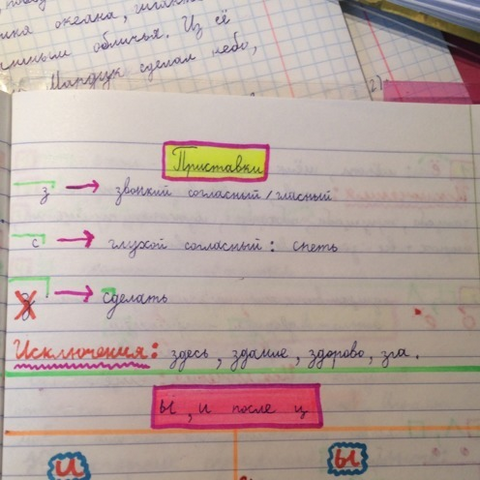 океана,
обличья. Из её
Мардук сделал небо,
2)
Приставки
з → звонкий согласный/гласный
с → глухой согласный: спеть
з → сделать
Исключения: здесь, здание, здорово, зга.
Ы, и после ц
и ы